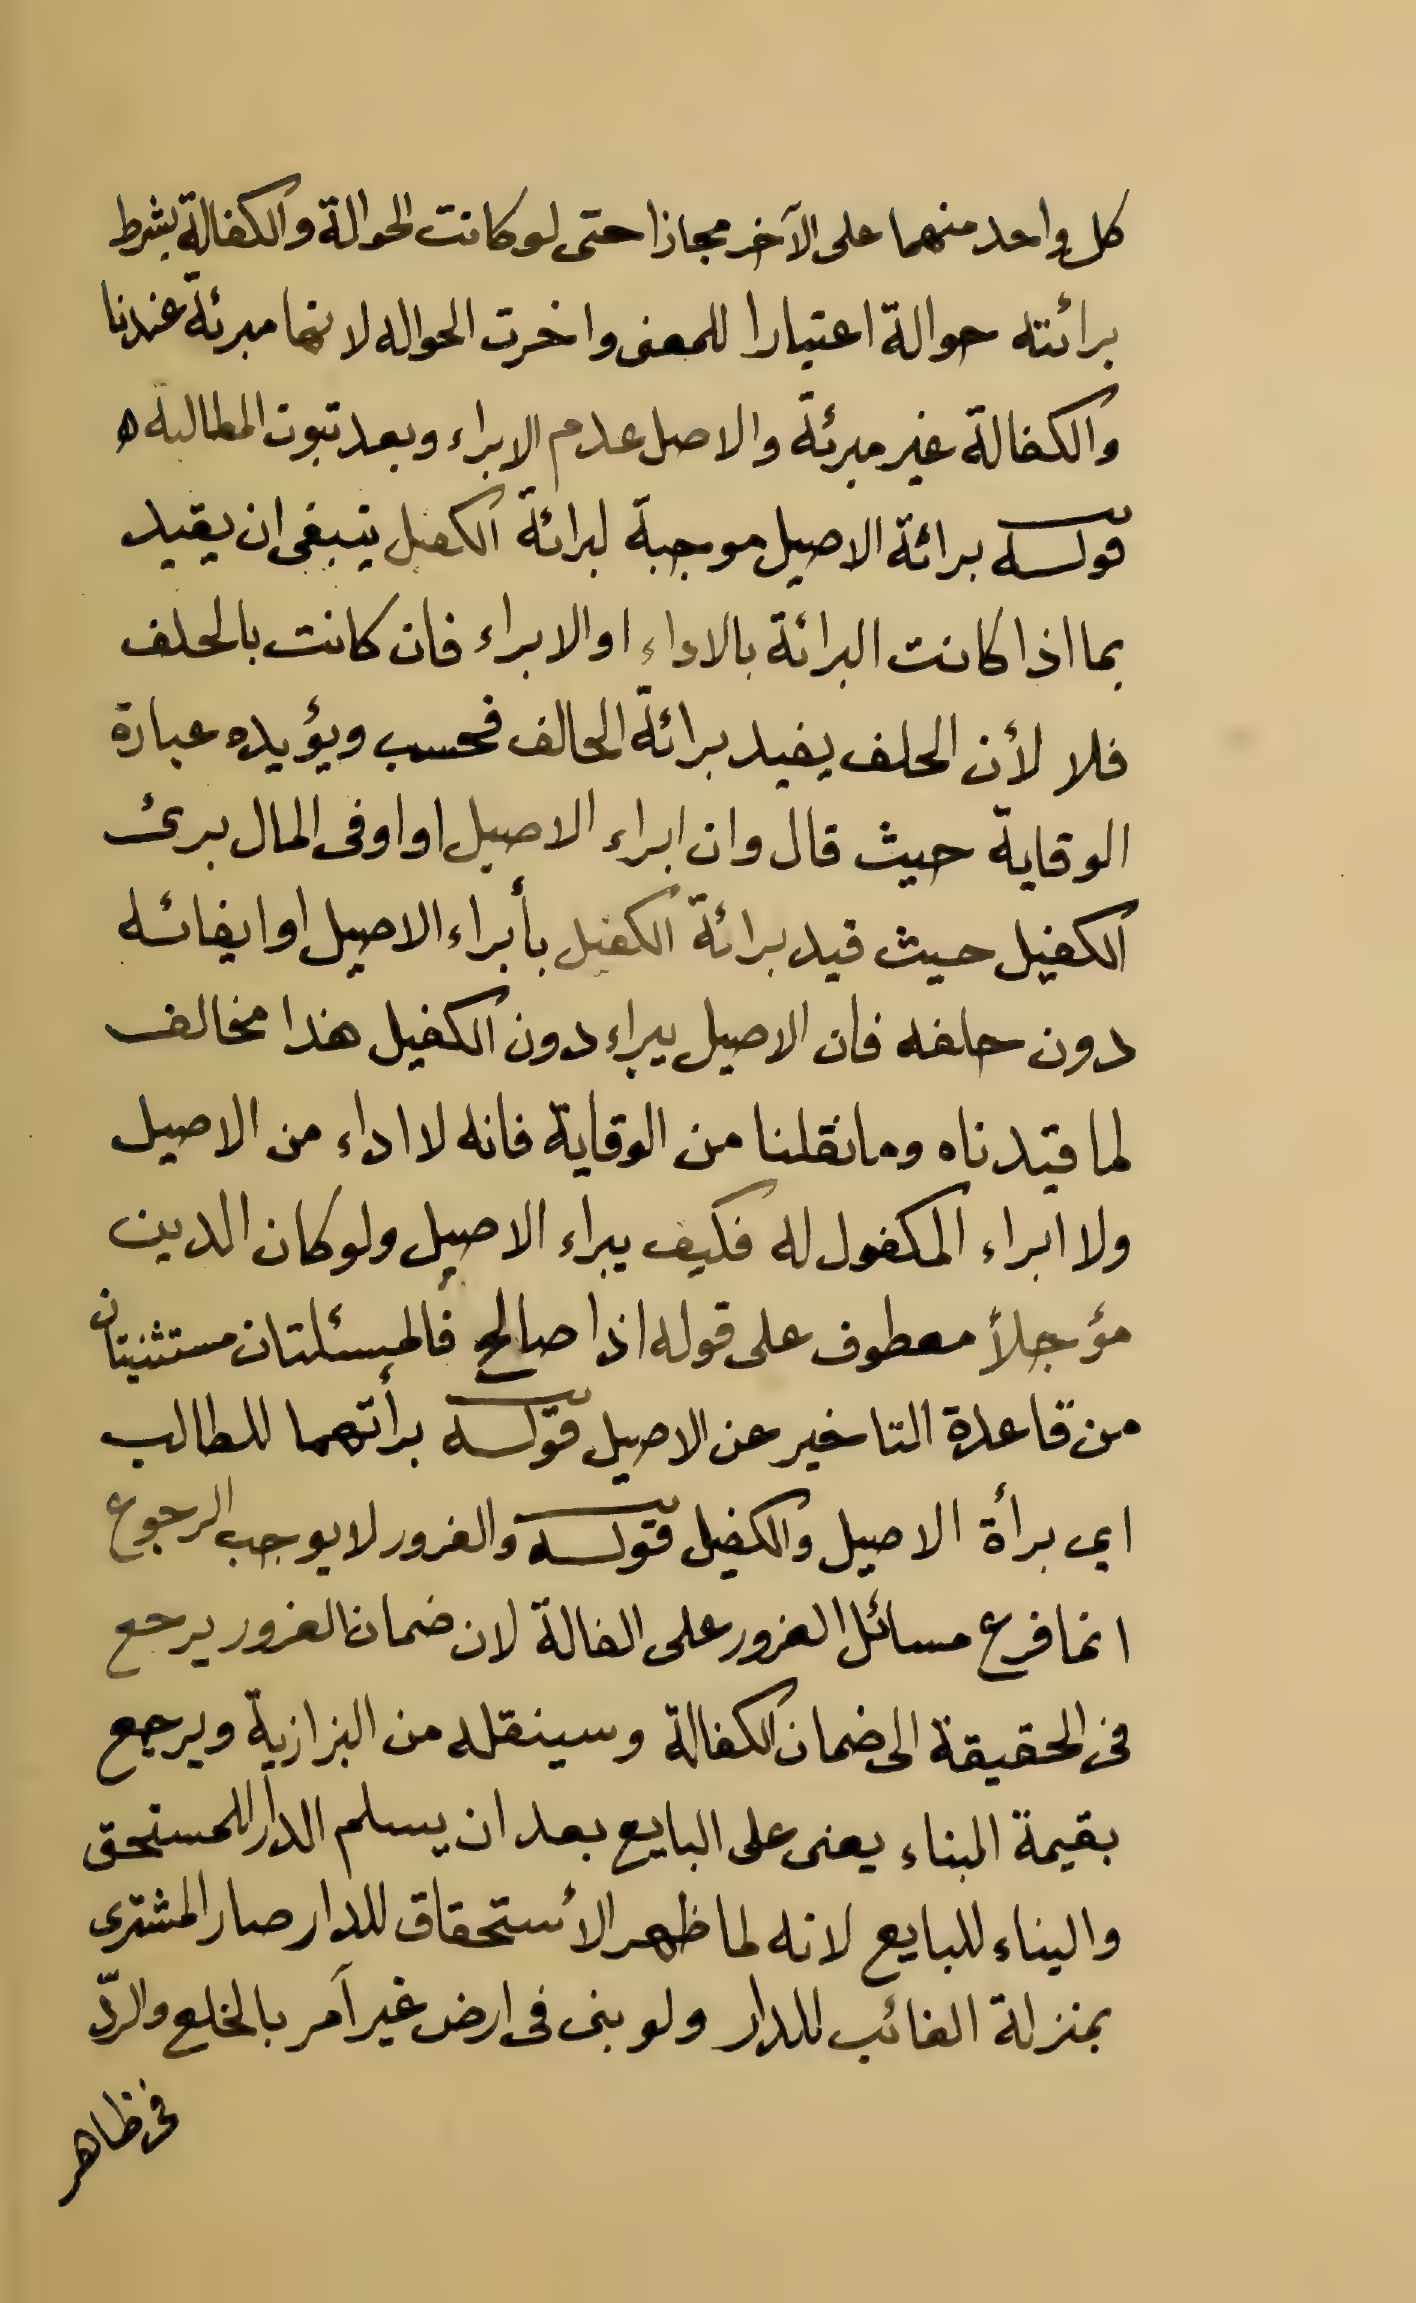 كل واحد منهما على الآخر مجازا حتى لو كانت الحوالة والكفالة بشرط
برائته حوالة اعتبارا للمعنى واخرت الحواله لانها مبرئة عندنا
والكفالة غير مبرئة والاصل عدم الابراء وبعد ثبوت المطالبة ه
قوله برائة الاصيل موجبة لبرائة الكفيل ينبغى ان يقيد
بما اذا كانت البرائة بالاداء او الابراء فان كانت بالحلف
فلا لأن الحلف يفيد برائة الحالف فحسب ويؤيده عبارة
الوقاية حيث قال وان ابراء الاصيل او اوفى المال برئ
الكفيل حيث قيد برائة الكفيل بأبراء الاصيل او ايفائه
دون حلفه فان الاصيل يبراء دون الكفيل هذا مخالف
لما قيدناه وما نقلنا من الوقاية فانه لا اداء من الاصيل
ولا ابراء المكفول له فكيف يبراء الاصيل ولو كان الدين
مؤجلاً معطوف على قوله اذا صالح فالمسئلتان مستثنيتان
من قاعدة التاخير عن الاصيل قوله برأتهما للطالب
اي برأة الاصيل والكفيل قوله والغرور لا يوجب الرجوع
انما فرع مسائل الغرور على الفالة لان ضمان الغرور يرجع
فى الحقيقة الى ضمان الكفالة وسينقله من البزازية ويرجع
بقيمة البناء يعنى على البايع بعد ان يسلم الدار للمستحق
والبناء للبايع لانه لما ظهر الأستحقاق للدار صار المشترى
بمنزلة الغائب للدار ولو بنى فى ارض غير آمر بالخلع والردّ
فى ظاهر